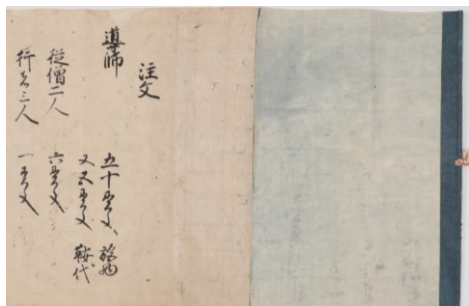 注文
導師 五十貫文、
又五貫文 鞍代
従僧二人 六貫文
行者三人 一貫文